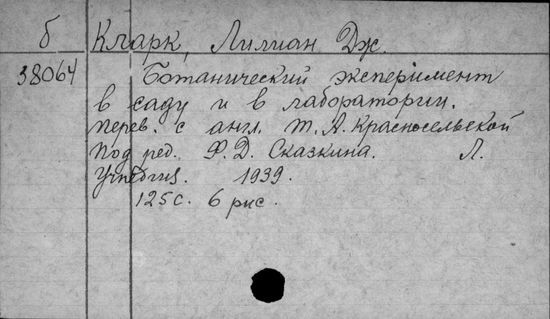 б Кларк, Лилиан Дж.
38064 Ботанический эксперимент
в саду и в лаборатории.
Перев. с англ. Т. А. Красносельской
Под ред. Ф. Д. Сказкина. Л.
Учпедгиз. 1939.
125 с. 6 рис.